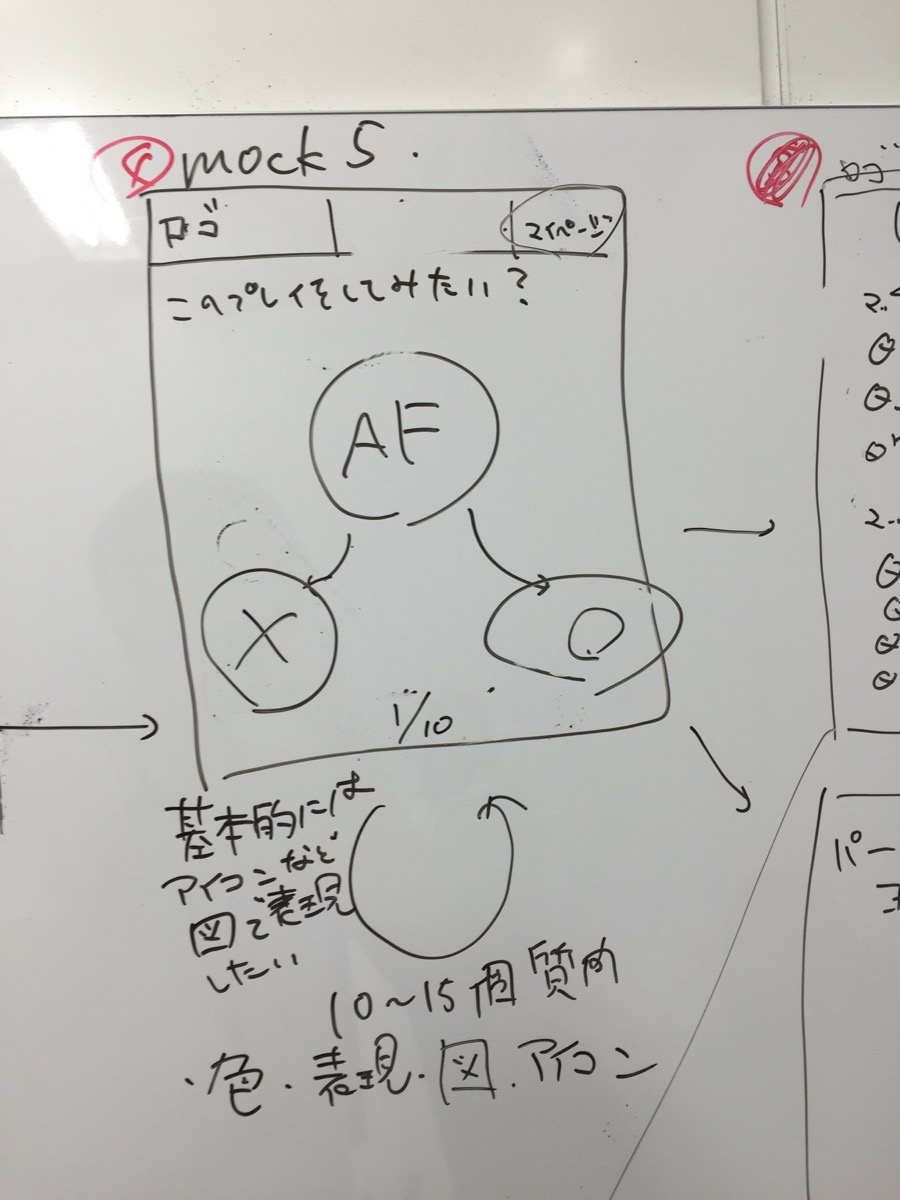 ④ mock5.
ロゴ
マイページ
このプレイをしてみたい?
AF
X
1/10
基本的には
アイコンなど
図で表現
したい
10~15個質問
・色・表現・図・アイコン
ロゴ
パー